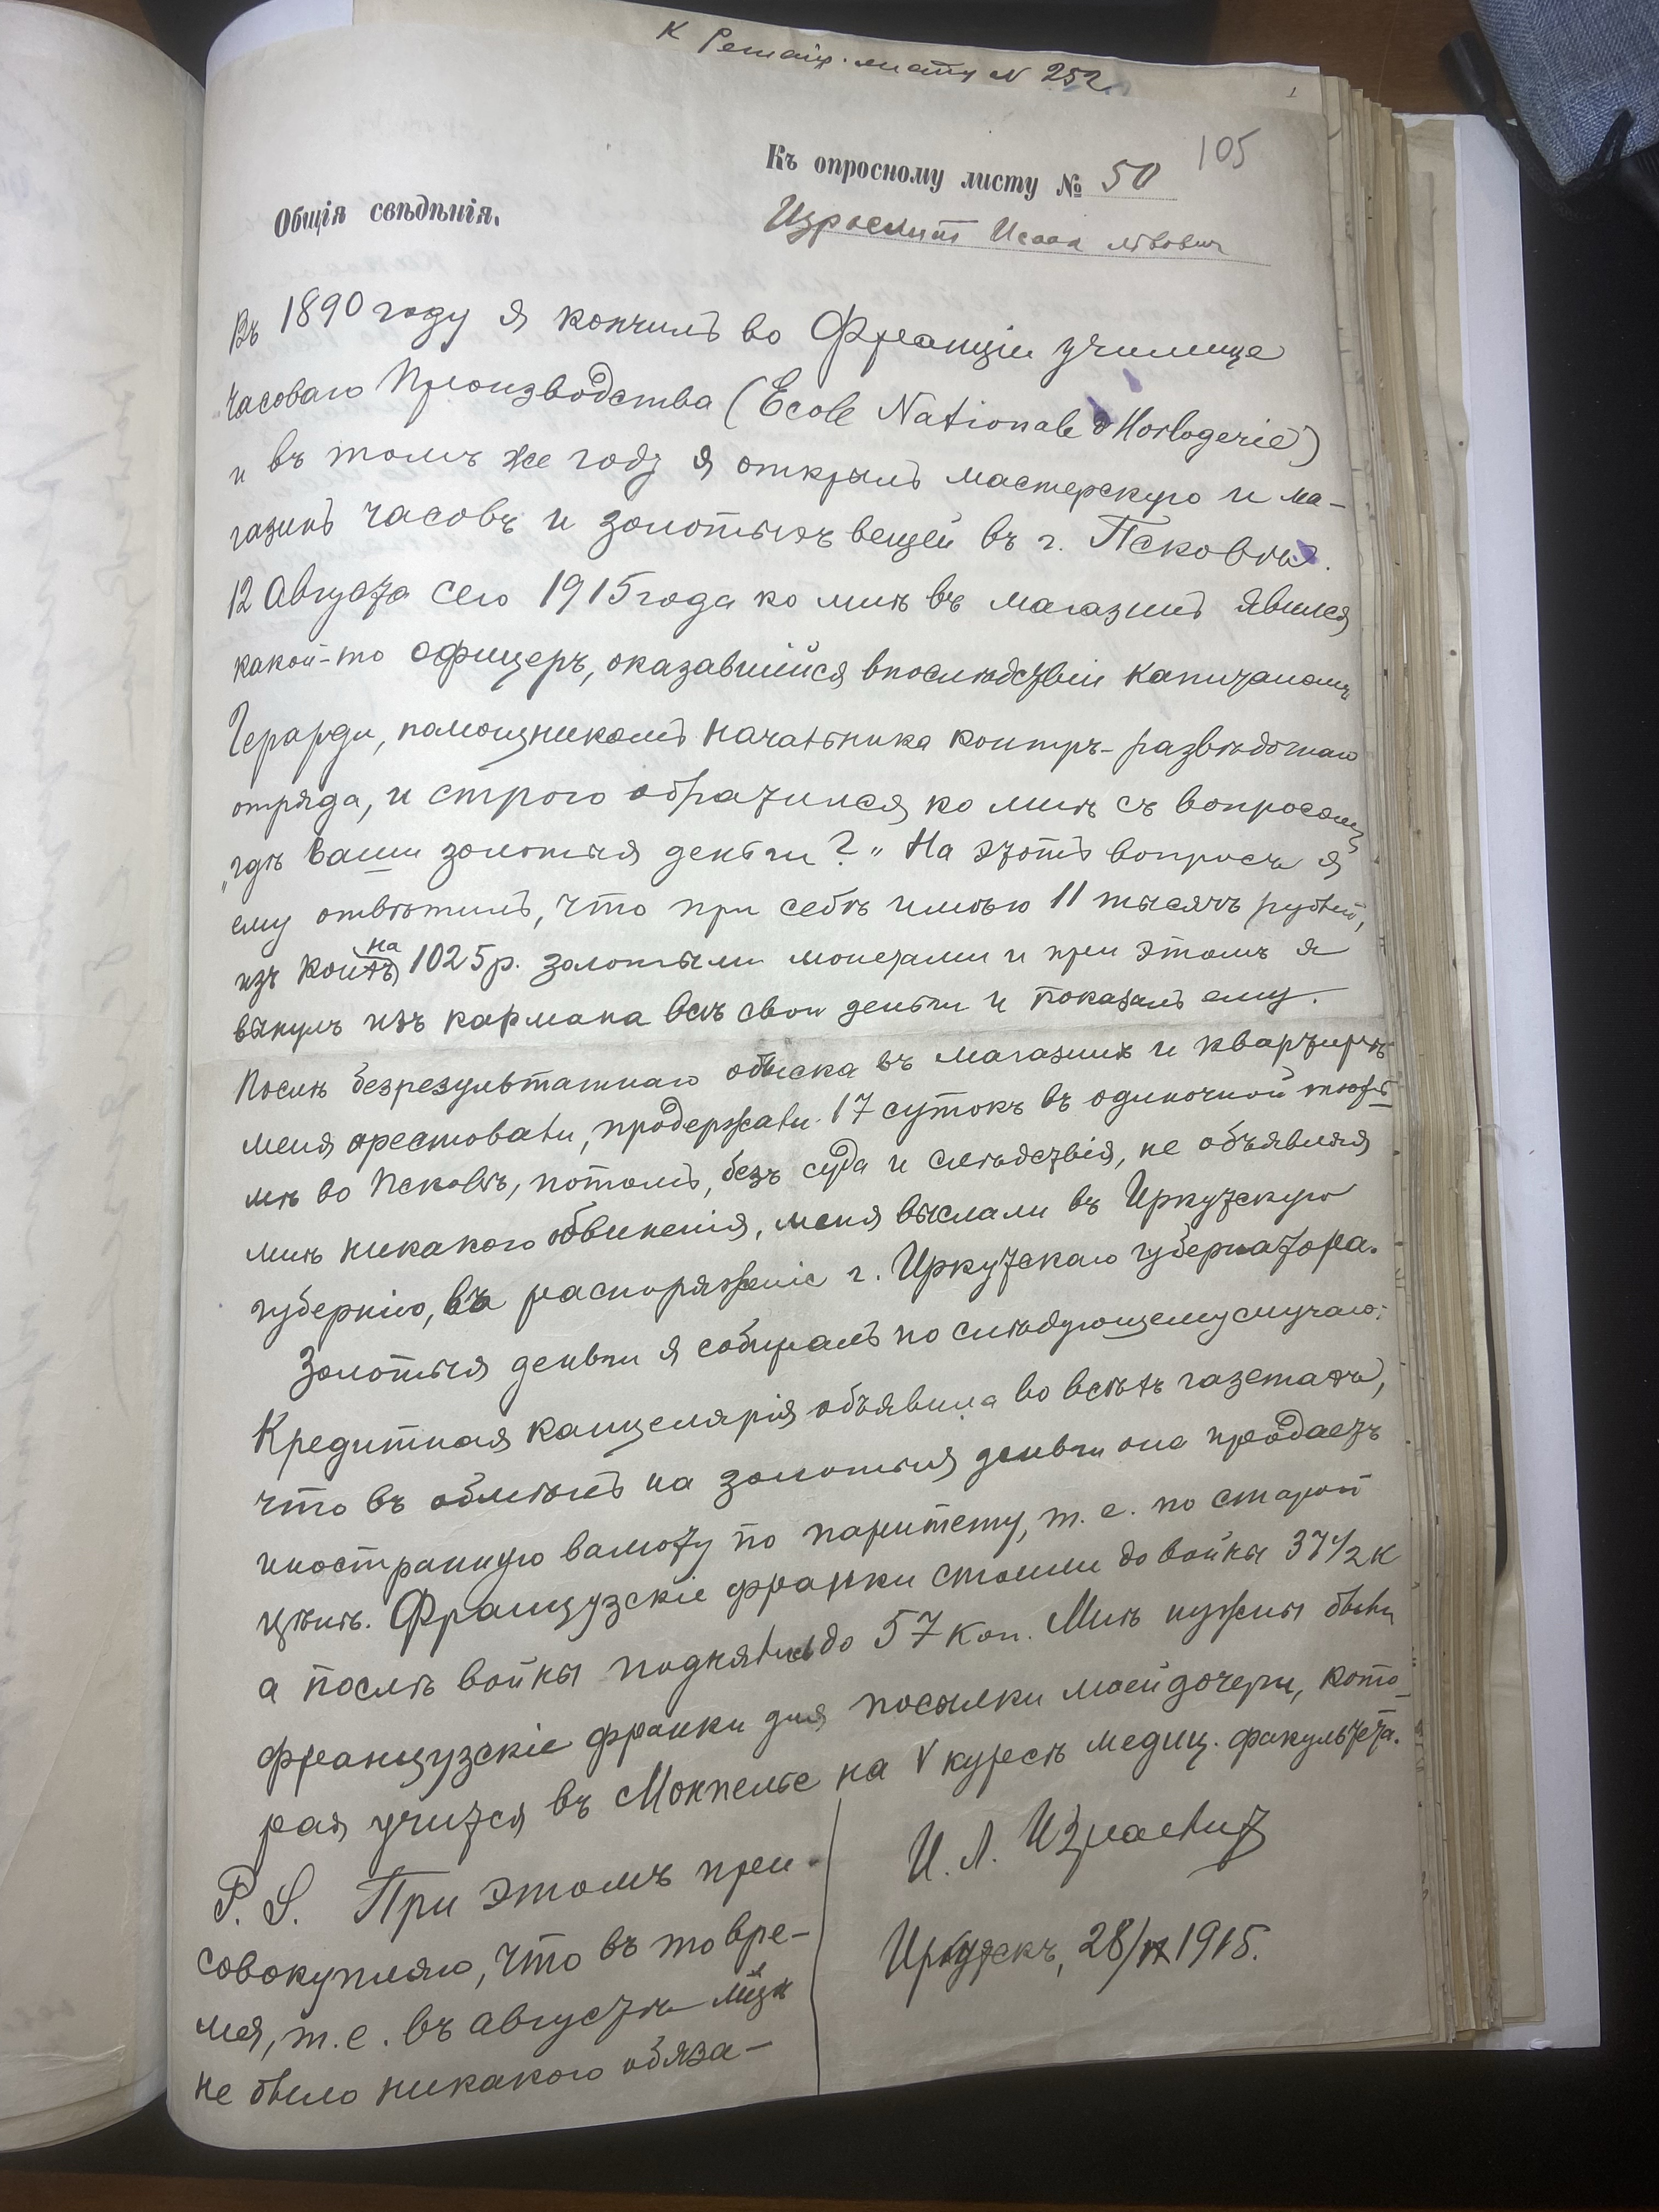 К Регистр. листу N 252
105
Къ опросному листу № 50
Общія свѣдѣнія.
Израелит Исаак Львович
Въ 1890 году я кончилъ во Франціи училище
Часоваго Производства (Ecole Nationale d'Horlogerie)
и въ томъ же году я открылъ мастерскую и ма-
газинъ часовъ и золотыхъ вещей въ г. Псковѣ.
12 Августа сего 1915 года ко мнѣ въ магазинъ явился
какой-то офицеръ, оказавшійся впослѣдствіи капитаномъ
Герарди, помощникомъ начальника контръ-развѣдочнаго
отряда, и строго обратился ко мнѣ съ вопросомъ
„гдѣ ваши золотыя деньги?" На этотъ вопросъ я
ему отвѣтилъ, что при себѣ имѣю 11 тысячъ рублей,
изъ коихъ на 1025 р. золотыми монетами и при этомъ я
вынулъ изъ кармана всѣ свои деньги и показалъ ему.
Послѣ безрезультатнаго обыска въ магазинѣ и квартирѣ
меня арестовали, продержали 17 сутокъ въ одиночной тюрь-
мѣ во Псковѣ, потомъ, безъ суда и слѣдствія, не объявляя
мнѣ никакого обвиненія, меня выслали въ Иркутскую
губернію, въ распоряженіе г. Иркутскаго губернатора.
Золотыя деньги я собиралъ по слѣдующему случаю:
Кредитная канцелярія объявила во всѣхъ газетахъ,
что въ обмѣнъ на золотыя деньги она продаетъ
иностранную валюту по паритету, т. е. по старой
цѣнѣ. Французскіе франки стоили до войны 37½ к
а послѣ войны поднялись до 57 коп. Мнѣ нужны были
французскіе франки для посылки моей дочери, кото-
рая учится въ Монпелье на V курсѣ медиц. факультета.
И. Л. Израелит
Иркутскъ, 28/IX 1915.
P. S. При этомъ при-
совокупляю, что въ то вре-
мя, т. е. въ августѣ м-цѣ
не было никакого обяза-